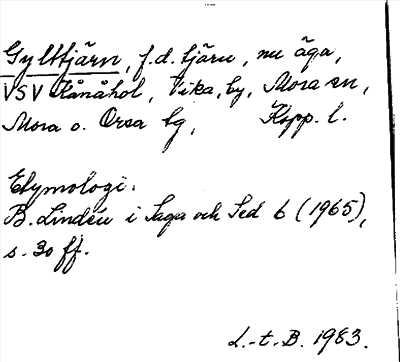 Gylttjärn, f.d. tjärn, nu äga,
VSV Kånåhol, Vika, by, Mora sn,
Mora o. Orsa tg, Kopp. l.
Etymologi:
B. Lindén i Saga och Sed 6 (1965),
s. 30 ff.
L.-t. B. 1983.